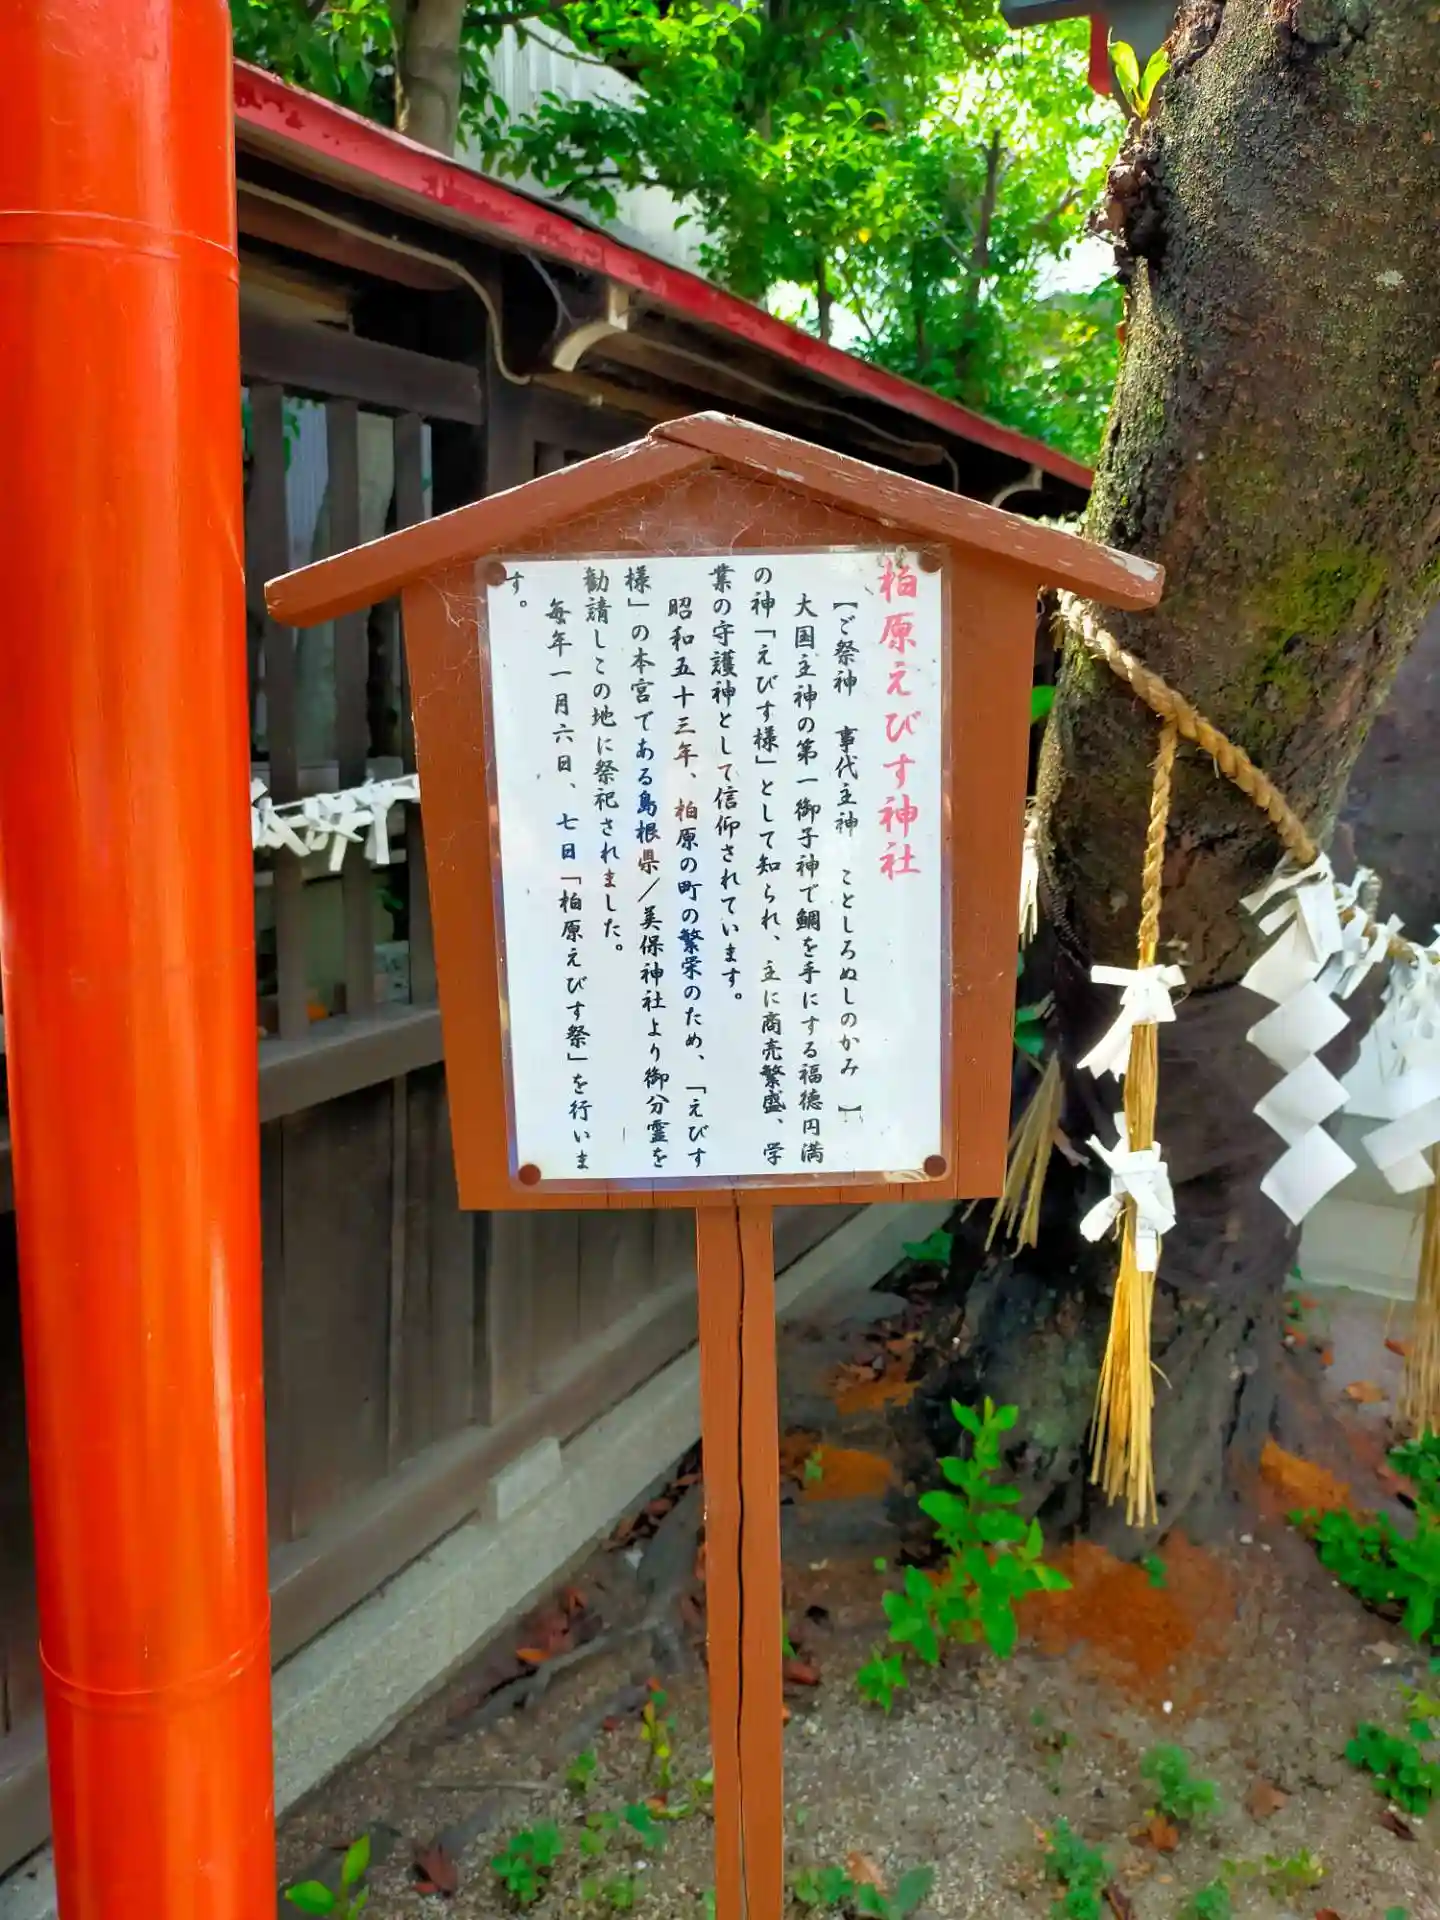 柏原えびす神社
【ご祭神　事代主神　ことしろぬしのかみ】
大国主神の第一御子神で鯛を手にする福徳円満
の神「えびす様」として知られ、主に商売繁盛、学
業の守護神として信仰されています。
昭和五十三年、柏原の町の繁栄のため、「えびす
様」の本宮である島根県／美保神社より御分霊を
勧請しこの地に祭祀されました。
毎年一月六日、七日「柏原えびす祭」を行いま
す。